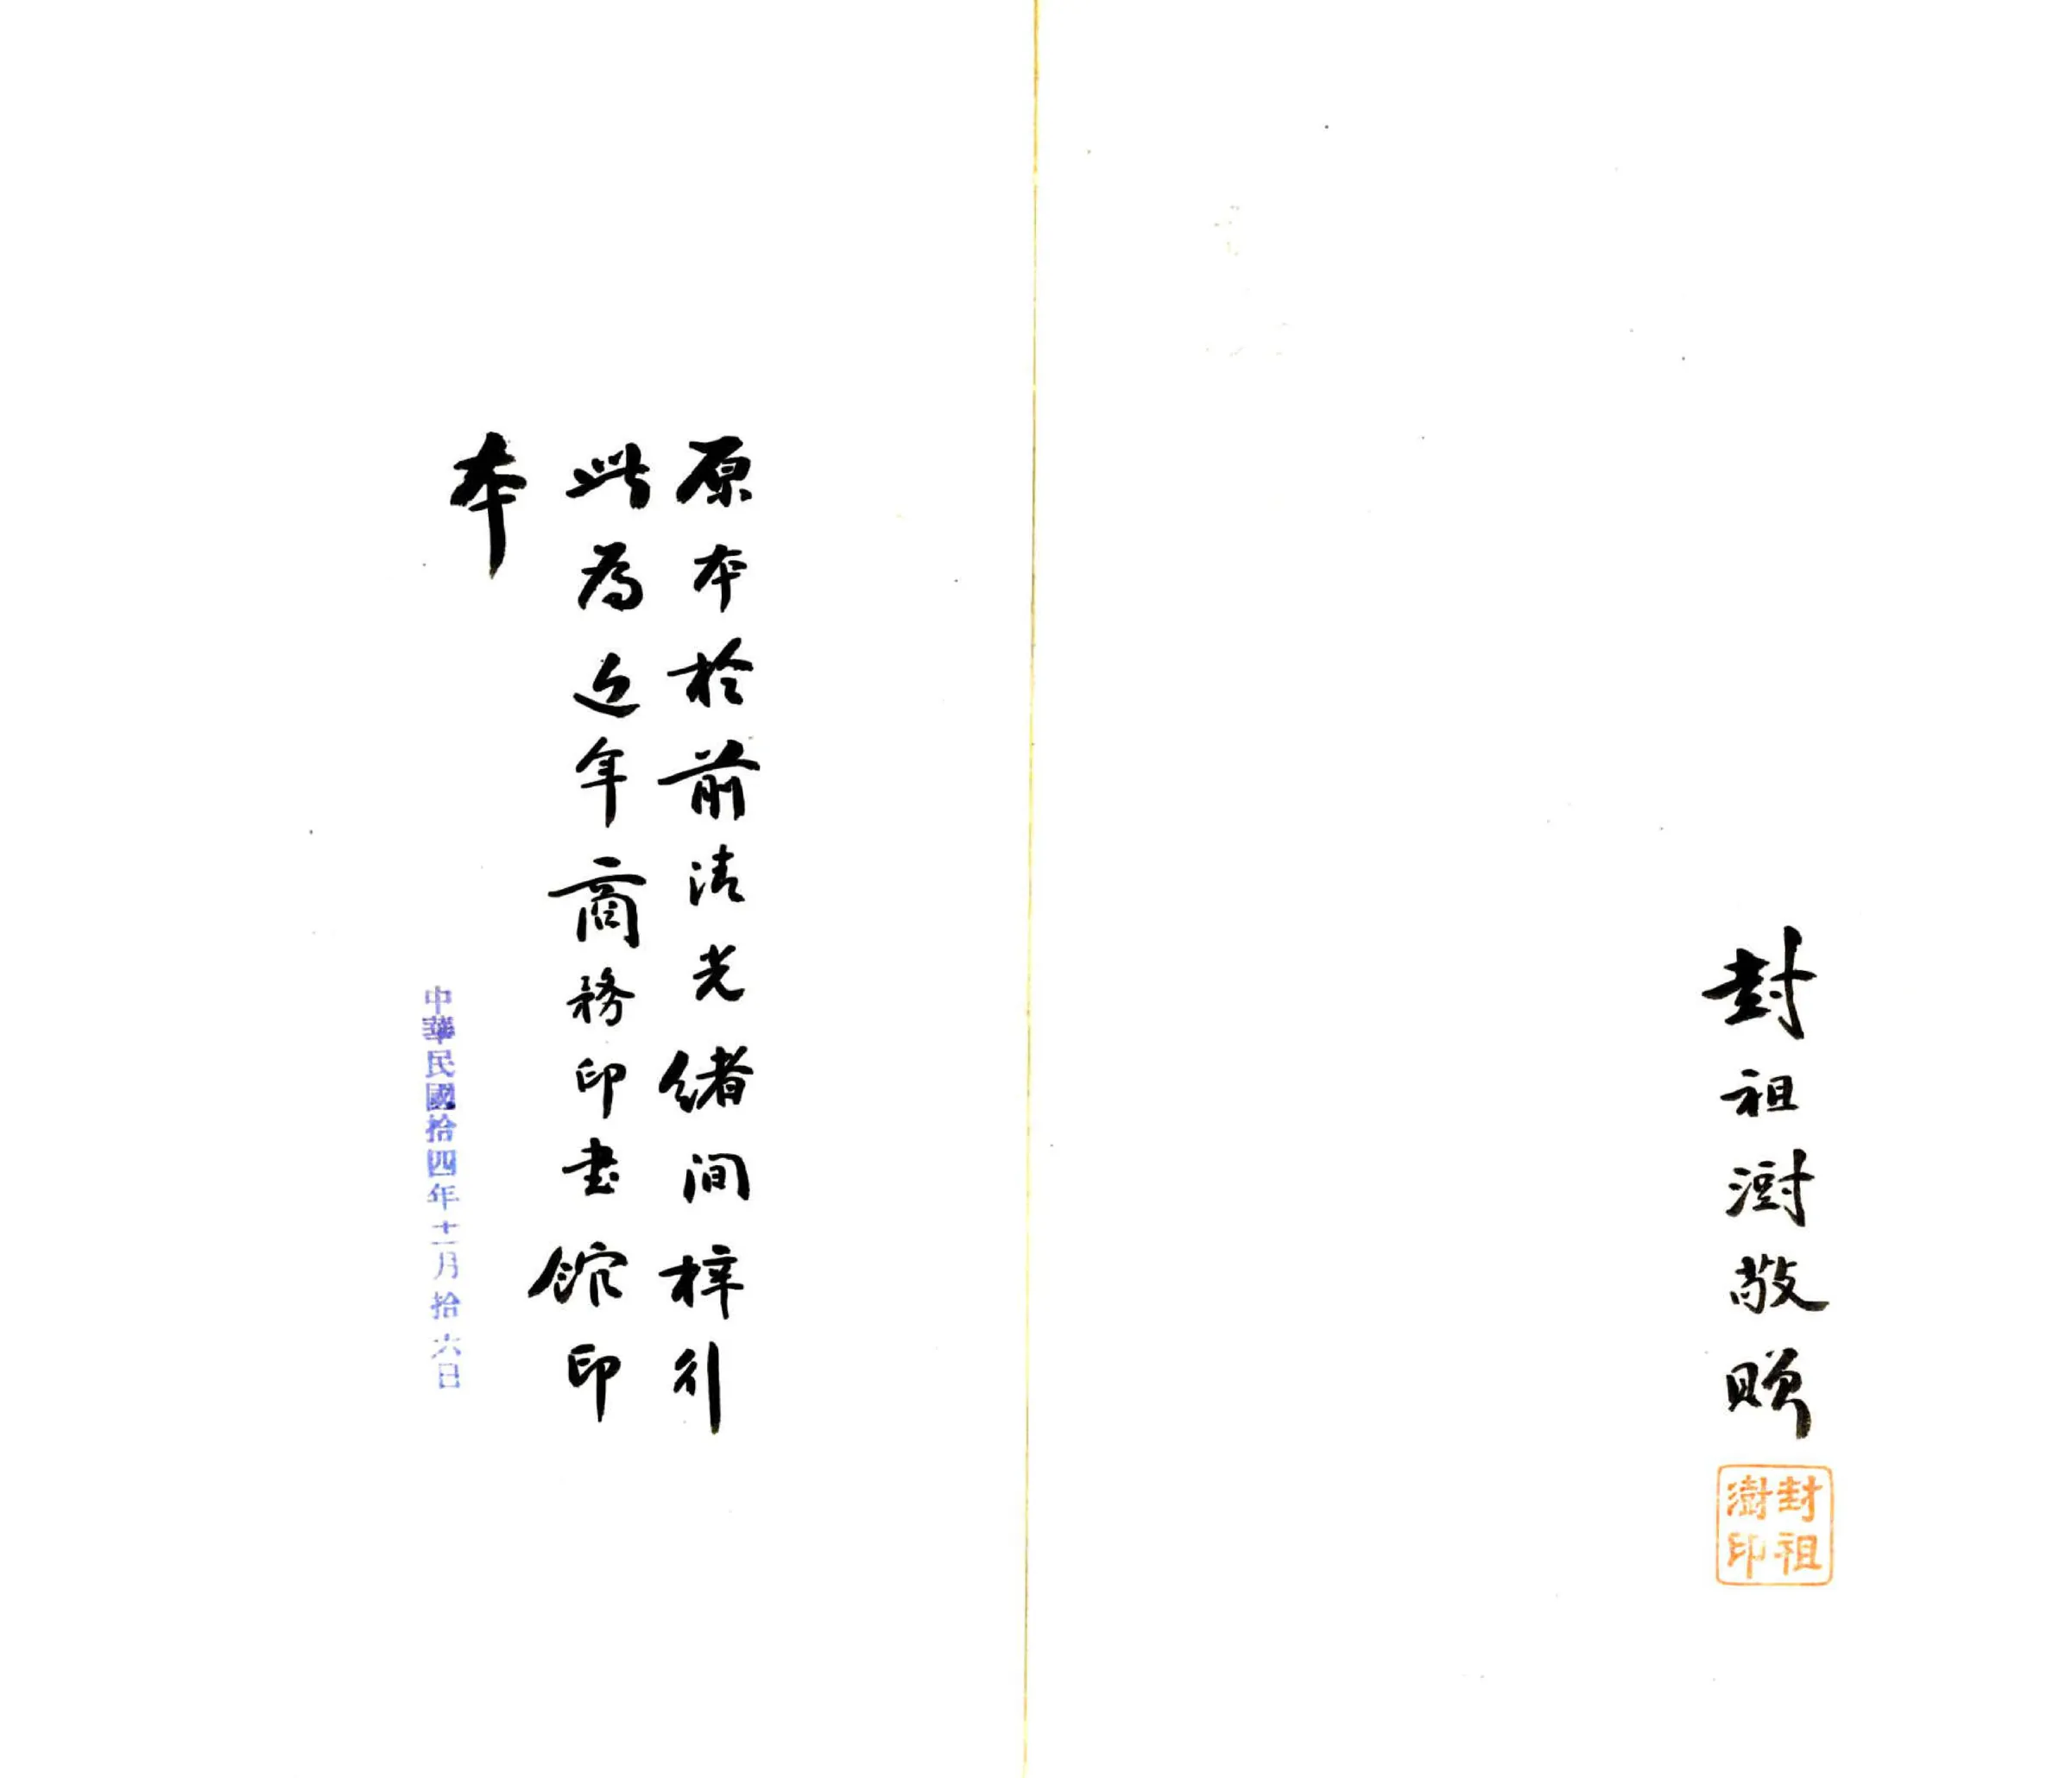 封祖澍敬贈
封祖
澍印
原本於前清光緒間梓行
此為近年商務印書館印
本
中華民國拾四年十二月拾六日